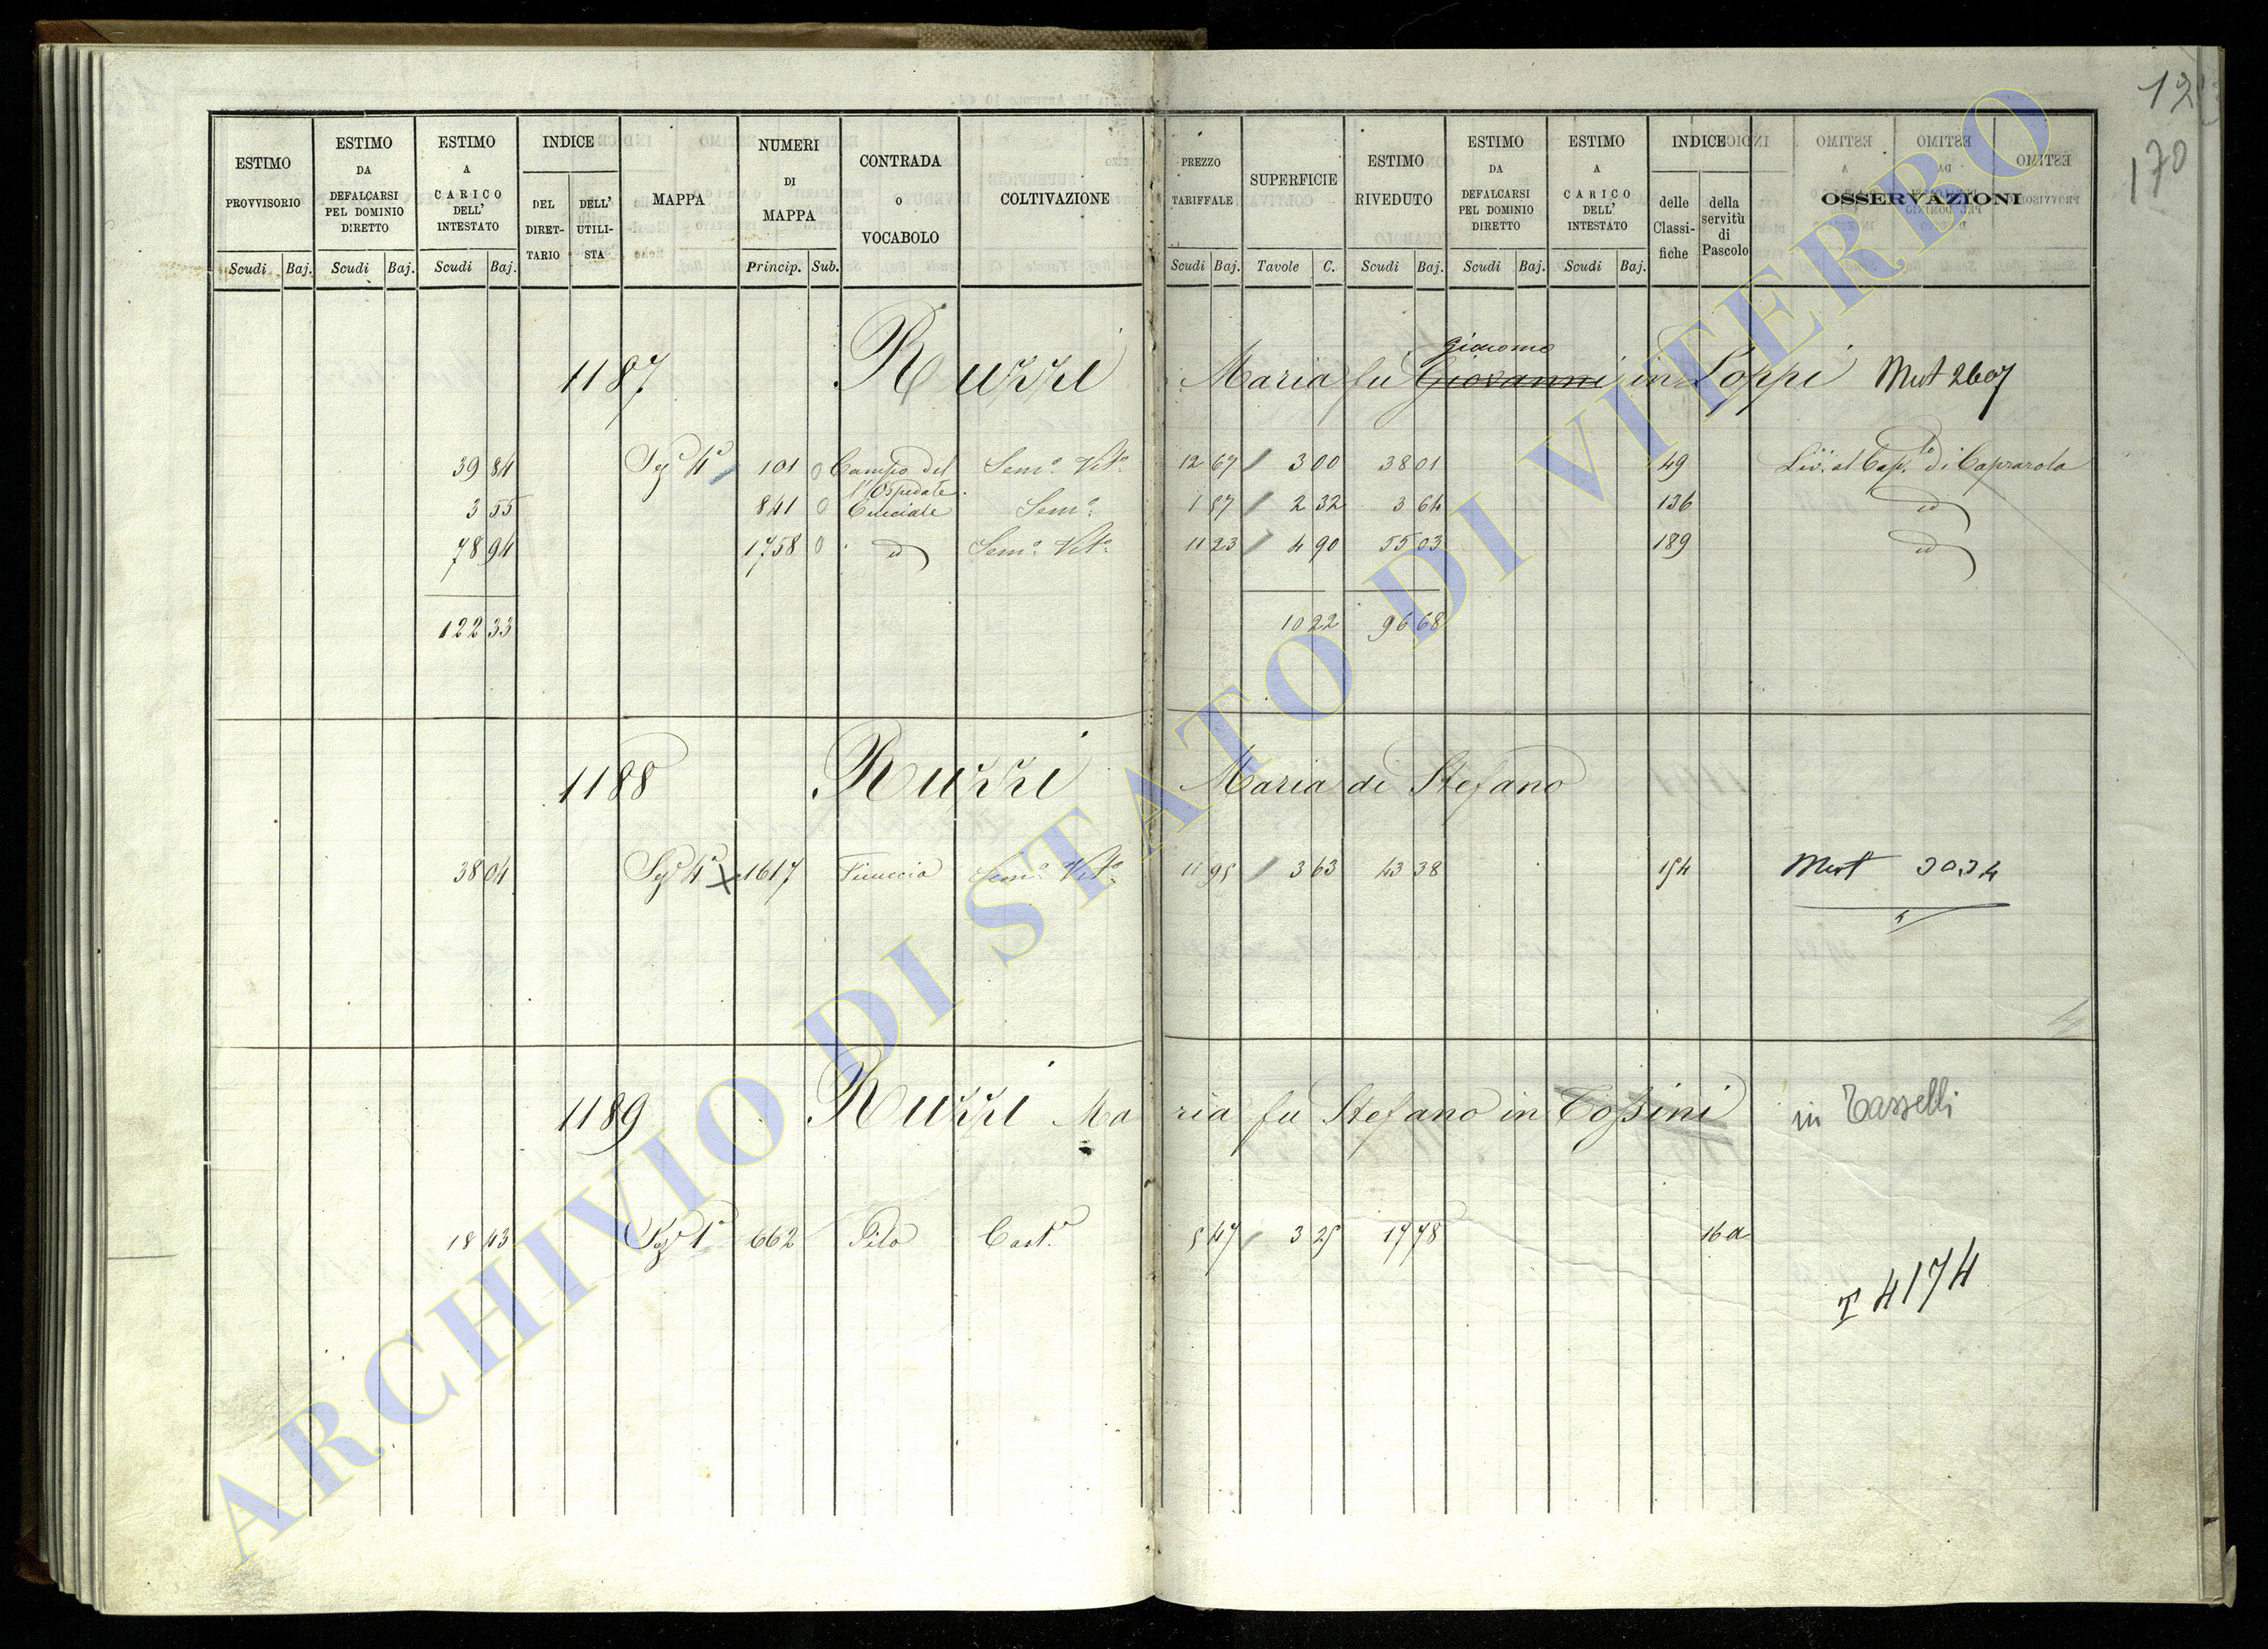 12
170
ESTIMO PROVVISORIO | ESTIMO DA DEFALCARSI PEL DOMINIO DIRETTO | ESTIMO A CARICO DELL' INTESTATO | INDICE DEL DIRET-TARIO | DELL' UTILI-STA | MAPPA | NUMERI DI MAPPA | CONTRADA o VOCABOLO | COLTIVAZIONE | PREZZO TARIFFALE | SUPERFICIE | ESTIMO RIVEDUTO | ESTIMO DA DEFALCARSI PEL DOMINIO DIRETTO | ESTIMO A CARICO DELL' INTESTATO | INDICE delle Classi-fiche | della servitù di Pascolo | OSSERVAZIONI
Scudi Baj. Scudi Baj. Scudi Baj. Princip. Sub. Scudi Baj. Tavole C. Scudi Baj. Scudi Baj. Scudi Baj.
Giacomo
1187 Ruzzi Maria fu Giovanni in Loppi Mut 2607
39 84 Sez. 4a 101 0 Campo del l'Ospedale Semo. Vito. 12 67 3 00 38 01 49 Liv. al Cap.lo di Caprarola
3 55 841 0 Semo. 1 57 2 32 3 64 136 id
78 94 1758 0 id Semo. Vito. 11 23 4 90 55 03 189 id
122 33 10 22 96 68
1188 Ruzzi Maria di Stefano
38 04 Sez. 4a 1617 Semo. Vito. 11 95 3 63 43 38 154 Mut 3034
1189 Ruzzi Maria fu Stefano in Toſsini in Tasselli
18 43 Sez. 1a 662 Pilo Cast. 5 47 3 25 17 78 16a
T 4174
ARCHIVIO DI STATO DI VITERBO